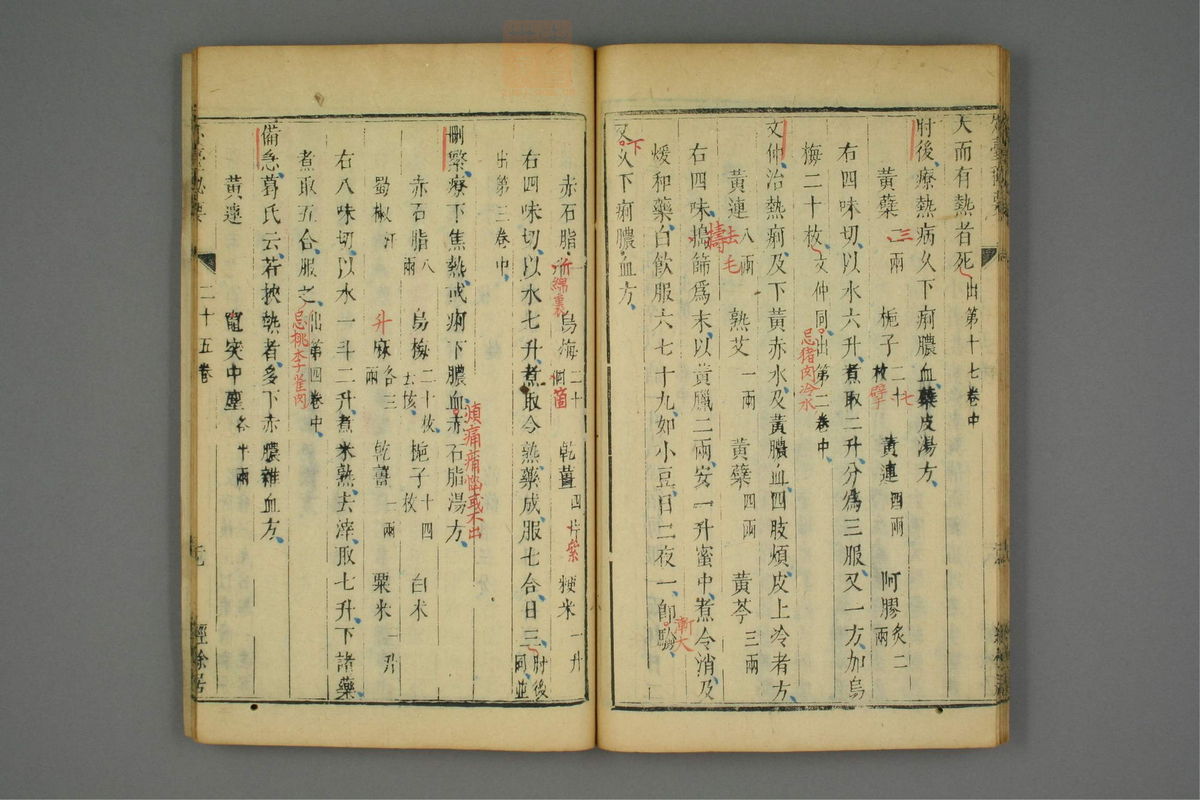 大而有熱者死出第十七卷中
肘後療熱病久下痢膿血蘗皮湯方
黃蘗三兩 梔子二十七枚擘 黃連四兩 阿膠炙二兩
右四味切以水六升煮取二升分爲三服又一方加烏
梅二十枚文仲同出第二卷中
忌猪肉冷水
文仲治熱痢及下黃赤水及黃膿血四肢煩皮上冷者方
黃連八兩去毛 熟艾一兩 黃蘗四兩 黃芩三兩
右四味搗篩爲末以黃臘二兩安一升蜜中煮令消及
擣
煖和藥白飲服六七十丸如小豆日二夜一即驗
漸大
又久下痢膿血方
下
赤石脂一斤綿裹 烏梅二十箇 乾薑四片 粳米一升
右四味切以水七升煮取令熟藥成服七合日三肘後同並
出第三卷中
刪繁療下焦熱或痢下膿血赤石脂湯方
煩痛
赤石脂八兩 烏梅二十枚去核 梔子十四枚 白朮
蜀椒汗 升麻各三兩 乾薑二兩 粟米一升
右八味切以水一斗二升煮米熟去滓取七升下諸藥
煮取五合服之出第四卷中
忌桃李雀肉
備急葛氏云若挾熱者多下赤膿雜血方
黃連 竈突中塵各半兩
二十五卷
經餘居